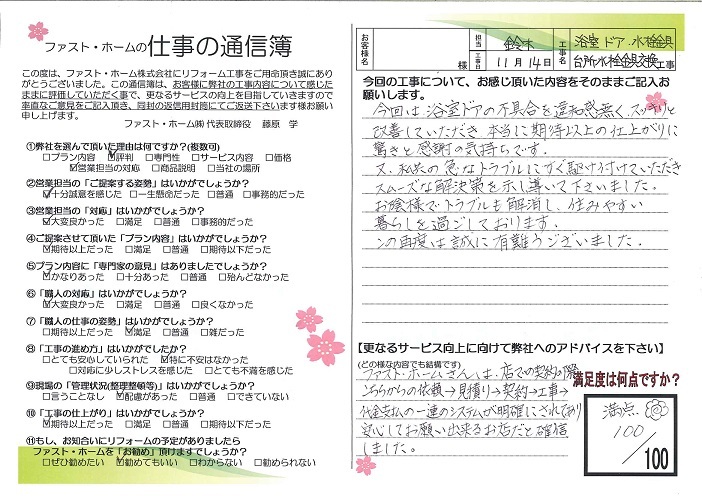 ファスト・ホームの仕事の通信簿
この度は、ファスト・ホーム株式会社にリフォーム工事をご用命頂き誠にあり
がとうございました。この通信簿は、お客様に弊社の工事内容について感じた
ままに評価していただく事で、更なるサービスの向上を目指していきますので
率直なご意見をご記入頂き、同封の返信用封筒にてご返送下さいます様お願い
申し上げます。
ファスト・ホーム㈱ 代表取締役 藤原 学
①弊社を選んで頂いた理由は何ですか?(複数可)
□プラン内容 ☑評判 □専門性 □サービス内容 □価格
☑営業担当の対応 □商品説明 □当社の場所
②営業担当の「ご提案する姿勢」はいかがでしょうか?
☑十分誠意を感じた □一生懸命だった □普通 □事務的だった
③営業担当の「対応」はいかがでしょうか?
☑大変良かった □満足 □普通 □事務的だった
④ご提案させて頂いた「プラン内容」はいかがでしょうか?
☑期待以上だった □満足 □普通 □期待以下だった
⑤プラン内容に「専門家の意見」はありましたでしょうか?
☑かなりあった □十分あった □普通 □殆んどなかった
⑥「職人の対応」はいかがでしょうか?
☑大変良かった □満足 □普通 □良くなかった
⑦「職人の仕事の姿勢」はいかがでしょうか?
□期待以上だった ☑満足 □普通 □雑だった
⑧「工事の進め方」はいかがでしたか?
□とても安心していられた ☑特に不安はなかった
□対応に少しストレスを感じた □とても不満を感じた
⑨現場の「管理状況(整理整頓等)」はいかがでしょうか?
□言うことなし ☑配慮があった □普通 □できていない
⑩「工事の仕上がり」はいかがでしょうか?
□期待以上だった ☑満足 □普通 □期待以下だった
⑪もし、お知合いにリフォームの予定がありましたら
ファスト・ホームを「お勧め」頂けますでしょうか?
□ぜひ勧めたい ☑勧めてもいい □わからない □勧められない
お客様名 様 担当 鈴木 工事日 11月14日 工事名 浴室ドア・水栓金具
台所水栓金具交換工事
今回の工事について、お感じ頂いた内容をそのままご記入お
願いします。
今回は、浴室ドアの不具合を違和感無く、スッキリと
改善していただき、本当に期待以上の仕上がりに
驚きと感謝の気持ちです。
又、私共の急なトラブルにすぐ駆け付けていただき
スムーズな解決策を示し導いて下さいました。
お陰様でトラブルも解消し、住みやすい
暮らしを過ごしております。
この再度は誠に有難うございました。
【更なるサービス向上に向けて弊社へのアドバイスを下さい】
(どの様な内容でも結構です)
ファスト・ホームさんは、店での契約の際
こちらからの依頼→見積り→契約→工事→
代金支払の一連のシステムが明確にされており
安心してお願い出来るお店だと確信
しました。
満足度は何点ですか?
満点
100
/100